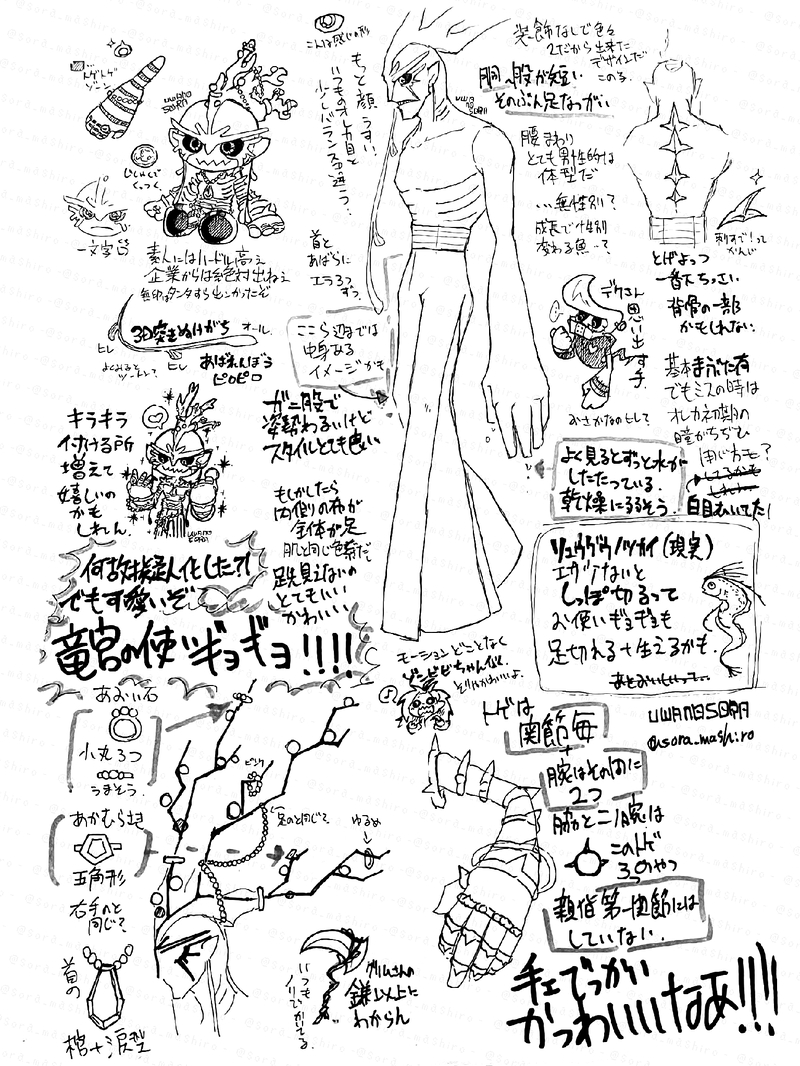 こんな感じの形
トゲトゲ
ゾーン
じしゃくで
くっつく。
一文字眉
素人にはハードル高え
企業からは絶対出ねえ
もと顔うすい。
いつものオレカ目と
少しバランスが違う?
装飾なしで色々
2だから出来た
デザインだ
このる。
胴、股が短い
そのぶん足ながい
腰まわり
とても男性的な
体型だ
…無性別?
成長で性別
変わる魚…?
刺すで!って
かんじ
とげよっつ
一番大ちっさい
背骨の一部
かもしれない
首と
あばらに
エラ3つ
ずつ。
ここら辺までは
中身ある
イメージかも
3D突きぬけがち
オール。
ヒレ
ヒレ
あばれんぼう
ピロピロ
デクさん
思い出す子。
おさかなのヒレで
基本まぶた有
でもミスの時は
オレカ初期の
瞳がちぢむ
用じかも?
白目むいてた!
キラキラ
付ける所
増えて
嬉しいの
かも
しれん。
ガニ股で
姿勢わるいけど
スタイルとても良い
よく見るとずっと水が
したたっている。
乾燥によるそう。
もしかしたら
内側の布が
全体が足
肌と同じ色素だ
足先見えないの
とてもいい
かわいい
リュウグウノツカイ(現実)
エガケないと
しっぽ切るって
お使いギョギョも
足切れる+生えるかも。
あとおいしいって…
何故擬人化した?!
でも可愛いぞ
竜宮の使いギョギョ!!!!
モーションどことなく
ゾンビビちゃん似。
そりゃかわいいよ。
UWANOSORA
@sora_mashiro
トゲは
関節毎
+
腕はその間に
2つ
脇と二ノ腕は
このトゲ
3つのやつ
親指第一関節には
していない。
あおい石
小丸3つ
うまそう。
ピンク
実のと同じで。
ゆるめ
あかむらさき
五角形
右手のと
同じで
首の
棺+涙型
いつも
グリムさんの
鎌以上に
わからん
手ェでっかい
かっわいいなあ!!!